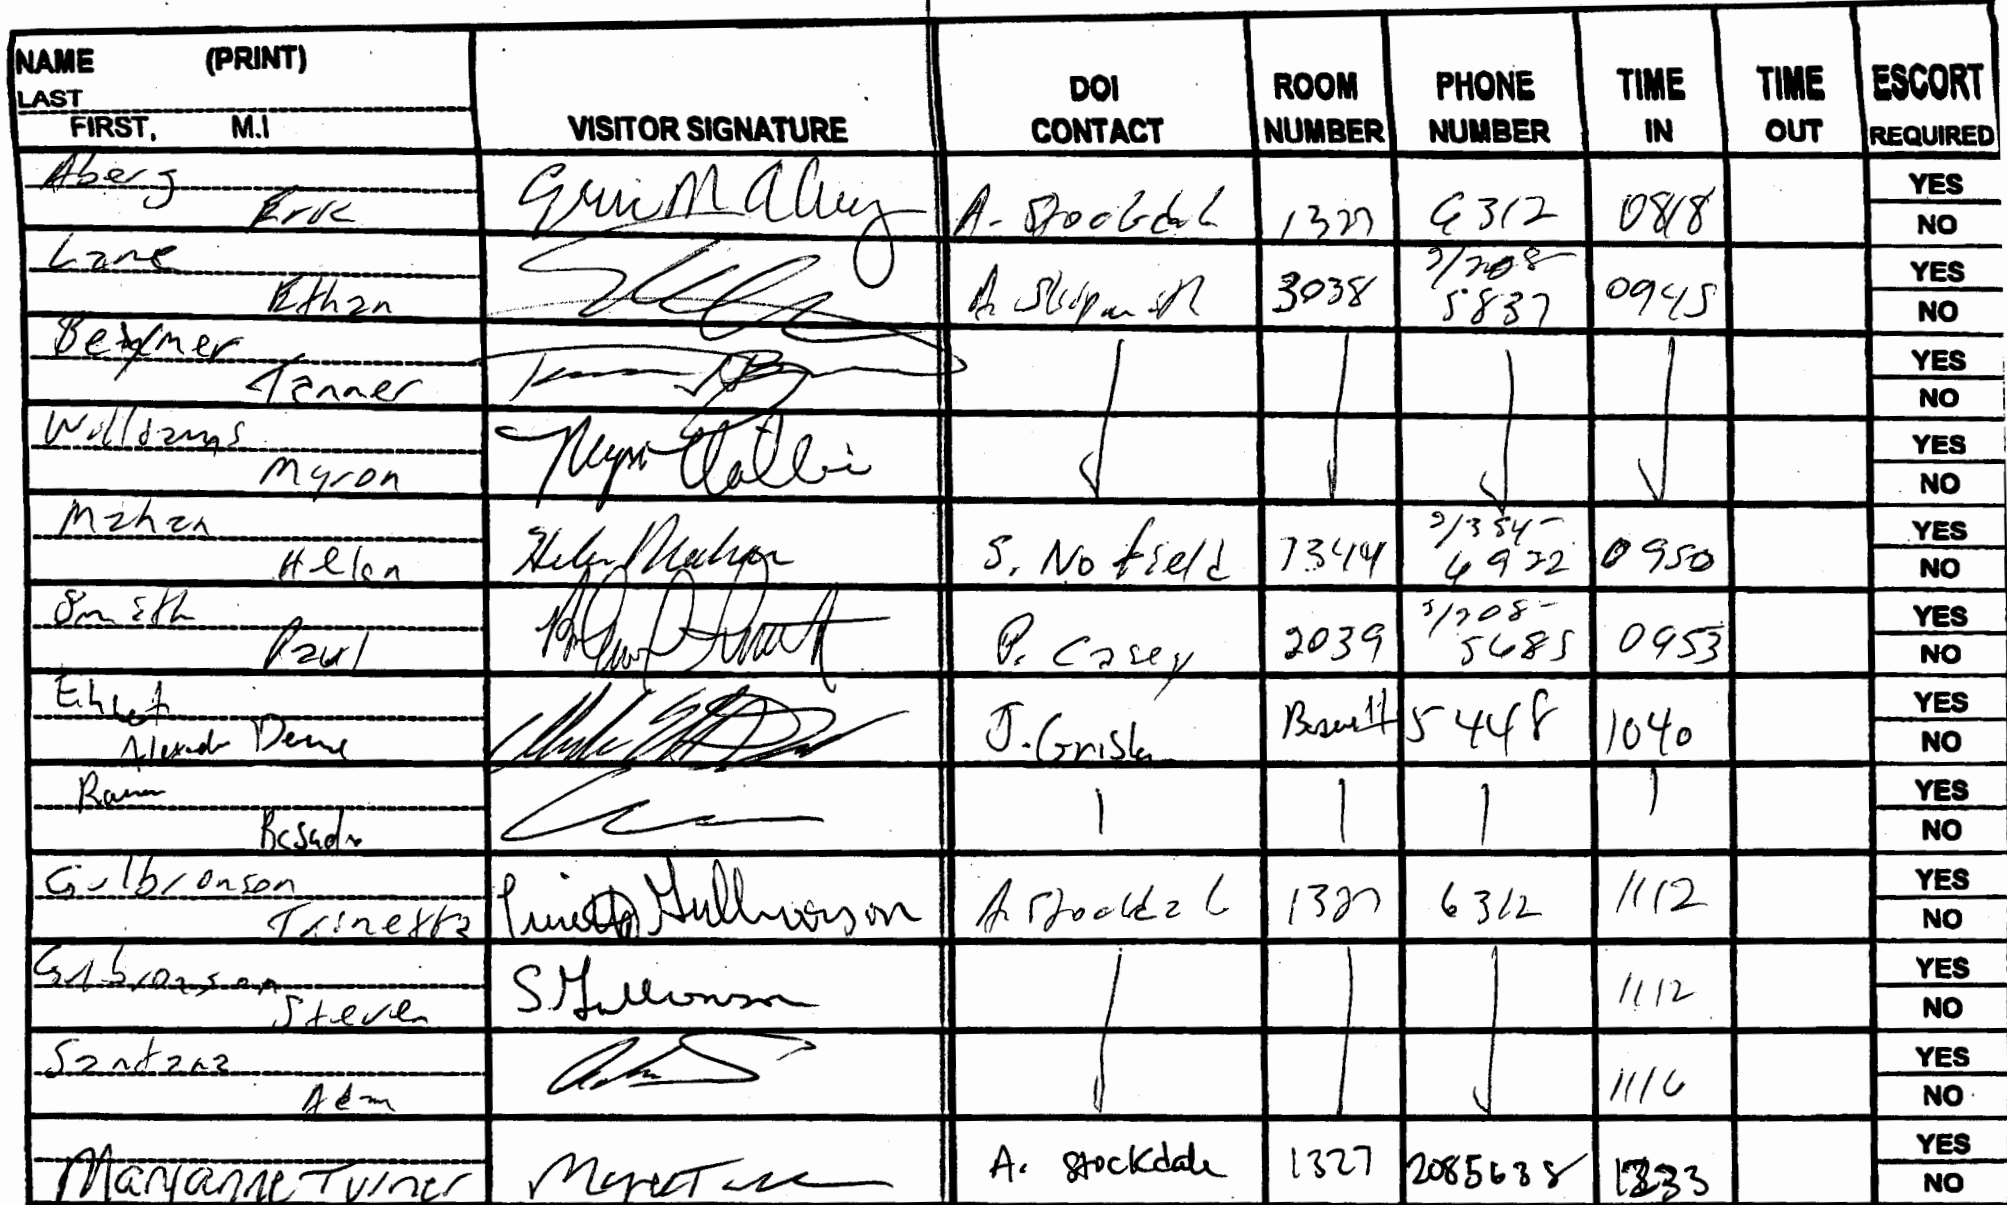 NAME (PRINT)
LAST
FIRST, M.I
VISITOR SIGNATURE
DOI CONTACT
ROOM NUMBER
PHONE NUMBER
TIME IN
TIME OUT
ESCORT REQUIRED
Aberg
Eric
A. Stockdale 1327 6312 0818 YES
NO
Lane
Ethan
3038 2/208-
5837 0945 YES
NO
Beymer
Tanner
YES
NO
Williams
Myron
YES
NO
Mahan
Helen
Helen Mahan
S. Nofield 7344 2/354-
6922 0950 YES
NO
Smith
Paul
P. Casey 2039 2/208-
5685 0953 YES
NO
J. 5448 1040 YES
NO
YES
NO
Gulbronson
Trinetta
A. Stockdale 1327 6312 1112 YES
NO
Gulbronson
Steven
1112 YES
NO
Santana
Adam
1116 YES
NO
Maryanne Turner
A. Stockdale 1327 2085638 YES
NO